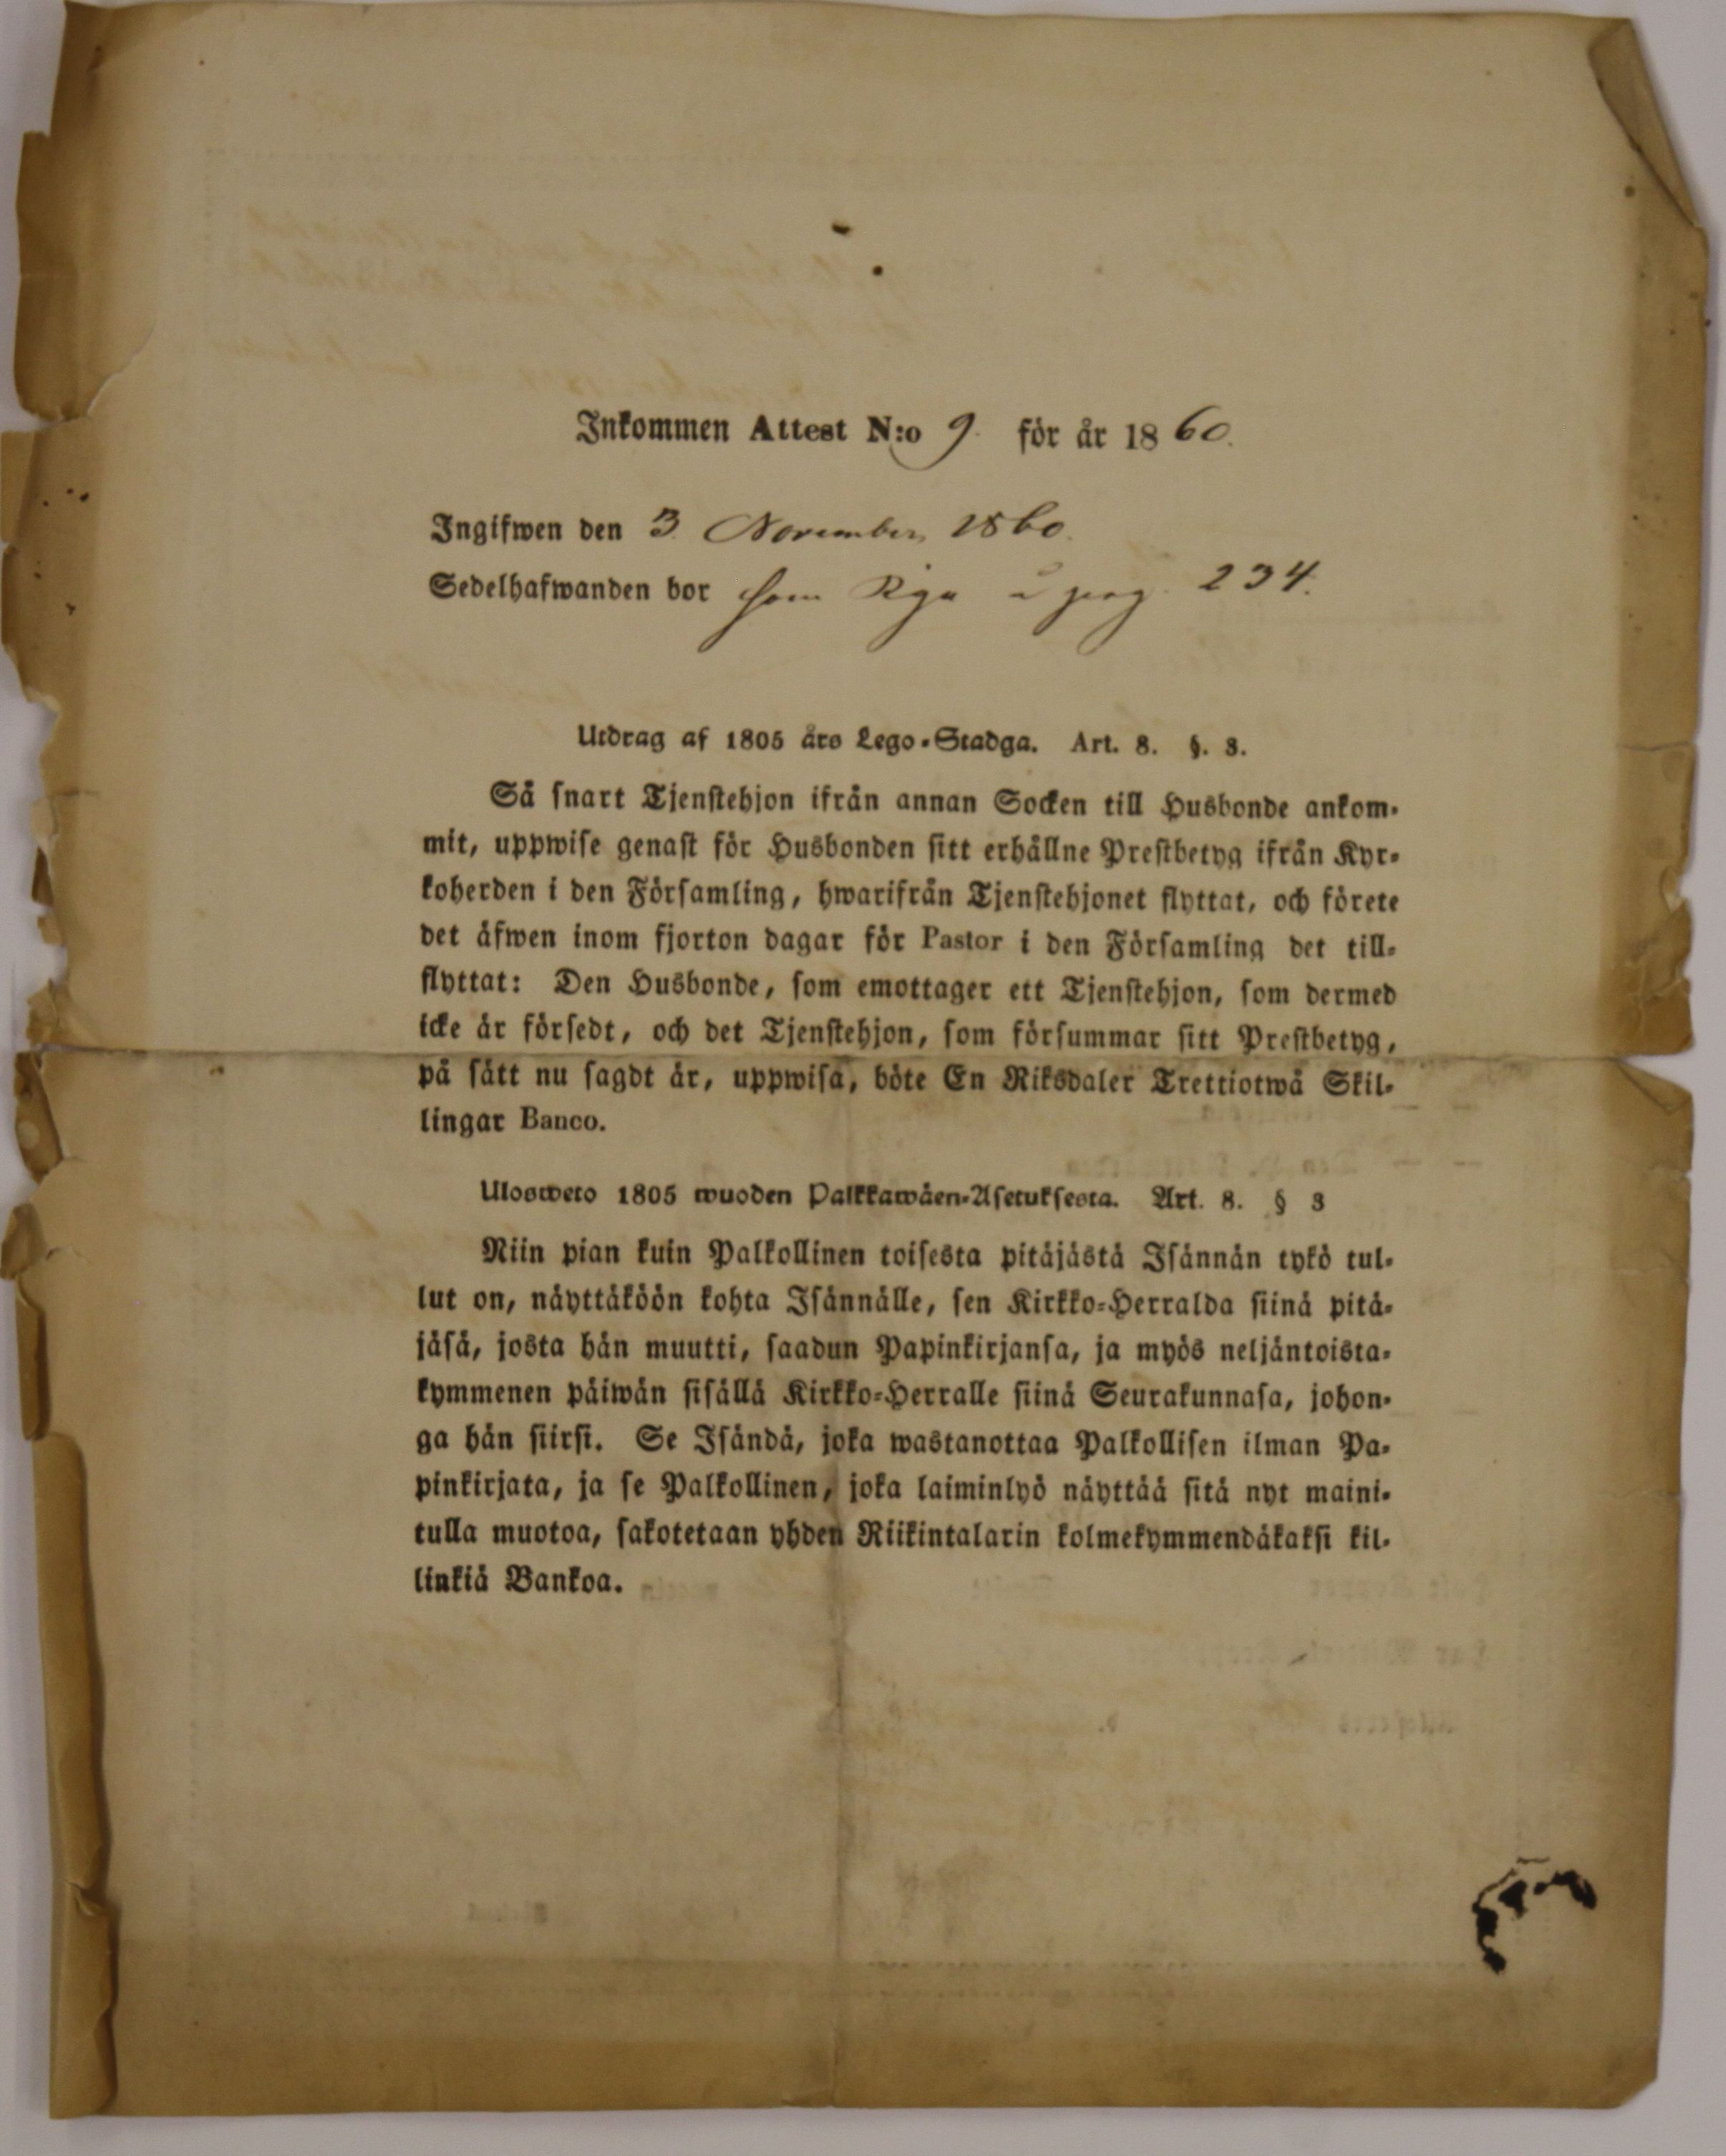 Inkommen Attest N:o 9. för år 1860.
Ingifwen den 3. November 1860.
Sedelhafwanden bor pag. 234.
Utdrag af 1805 års Lego-Stadga. Art. 8. §. 3.
Så snart Tjenstehjon ifrån annan Socken till Husbonde ankom-
mit, uppwise genast för Husbonden sitt erhållne Prestbetyg ifrån Kyr-
koherden i den Församling, hwarifrån Tjenstehjonet flyttat, och förete
det äfwen inom fjorton dagar för Pastor i den Församling det till-
flyttat: Den Husbonde, som emottager ett Tjenstehjon, som dermed
icke är försedt, och det Tjenstehjon, som försummar sitt Prestbetyg,
på sätt nu sagdt är, uppwisa, böte En Riksdaler Trettiotwå Skil-
lingar Banco.
Ulosweto 1805 wuoden Palkkawäen-Asetuksesta. Art. 8. § 3
Niin pian kuin Palkollinen toisesta pitäjästä Isännän tykö tul-
lut on, näyttäköön kohta Isännälle, sen Kirkko-Herralda siinä pitä-
jäsä, josta hän muutti, saadun Papinkirjansa, ja myös neljäntoista-
kymmenen päiwän sisällä Kirkko-Herralle siinä Seurakunnasa, johon-
ga hän siirsi. Se Isändä, joka wastanottaa Palkollisen ilman Pa-
pinkirjata, ja se Palkollinen, joka laiminlyö näyttää sitä nyt maini-
tulla muotoa, sakotetaan yhden Riikintalarin kolmekymmendäkaksi kil-
linkiä Bankoa.